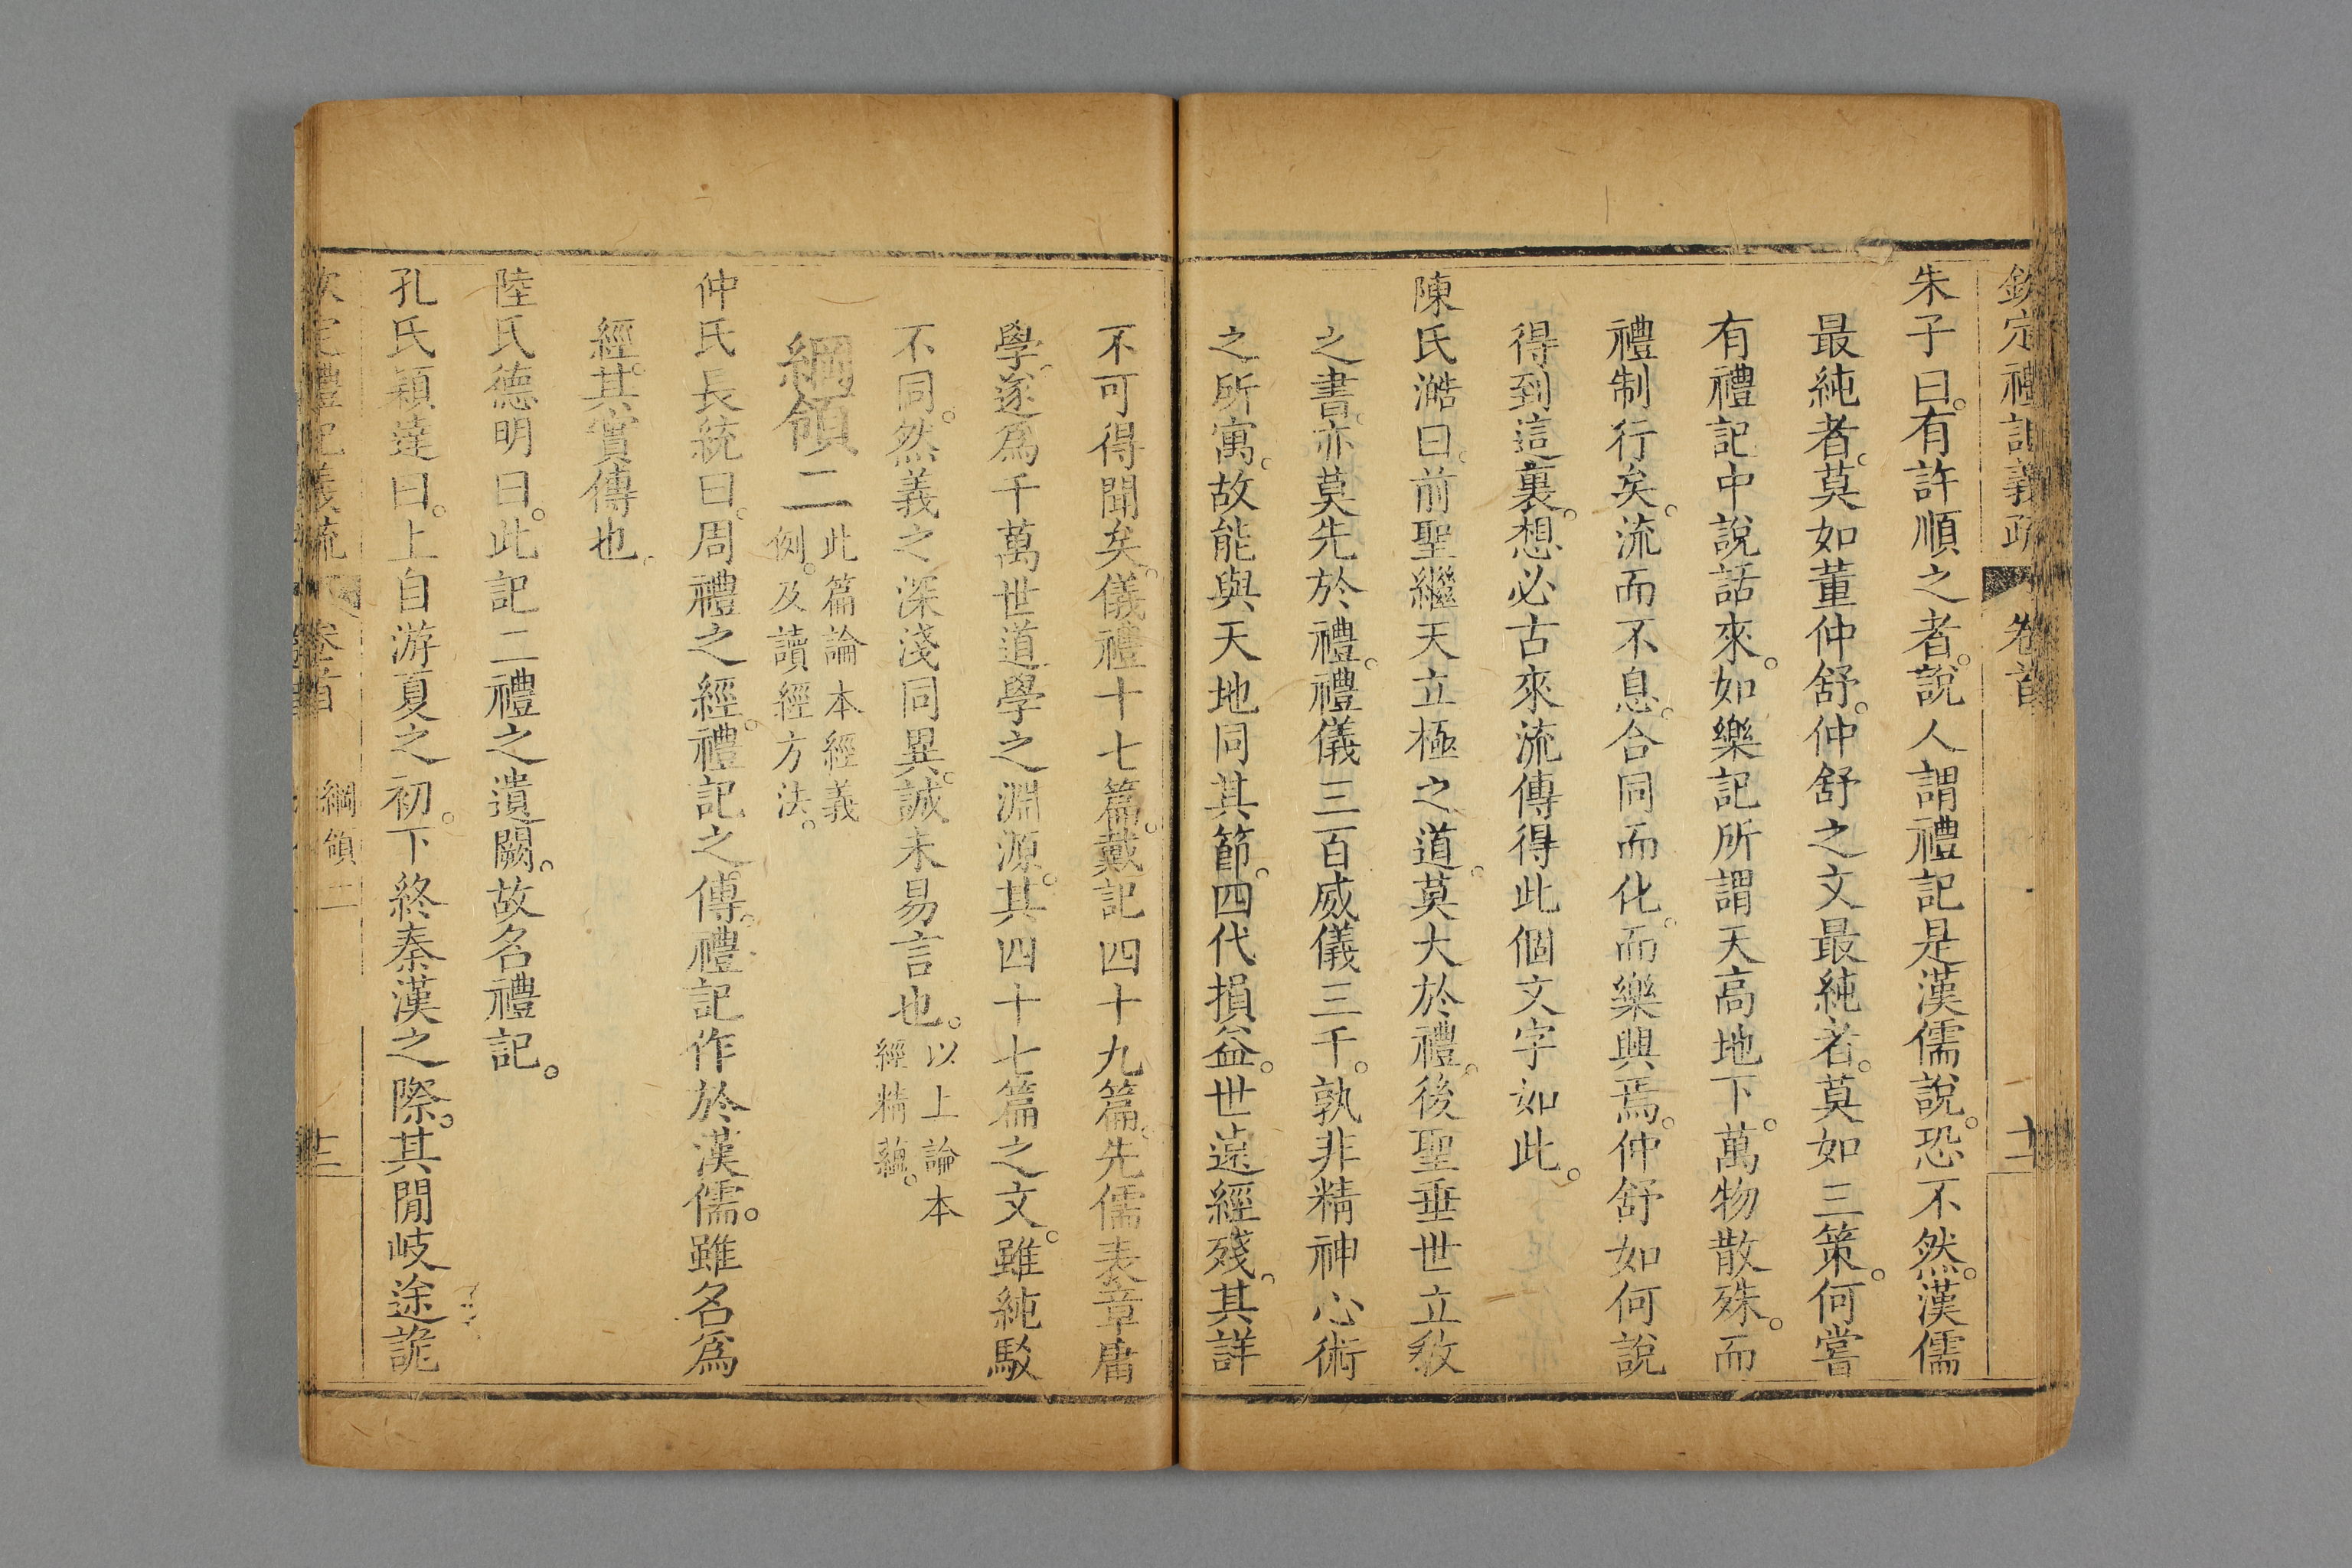 欽定禮記義疏 卷首
朱子曰。有許順之者。說人謂禮記是漢儒說。恐不然。漢儒
最純者。莫如董仲舒。仲舒之文最純者。莫如三策。何嘗
有禮記中說話來。如樂記所謂天高地下。萬物散殊。而
禮制行矣。流而不息。合同而化。而樂興焉。仲舒如何說
得到這裏。想必古來流傳得此個文字如此。
陳氏澔曰。前聖繼天立極之道。莫大於禮。後聖垂世立教
之書。亦莫先於禮。禮儀三百威儀三千。孰非精神心術
之所寓。故能與天地同其節。四代損益。世遠經殘。其詳
不可得聞矣。儀禮十七篇。戴記四十九篇。先儒表章庸
學。遂爲千萬世道學之淵源。其四十七篇之文。雖純駁
不同。然義之深淺同異。誠未易言也。以上論本
經精蘊。
綱領二 此篇論本經義
例。及讀經方法。
仲氏長統曰。周禮之經。禮記之傳。禮記作於漢儒。雖名爲
經。其實傳也。
陸氏德明曰。此記二禮之遺闕。故名禮記。
孔氏穎達曰。上自游夏之初。下終秦漢之際。其閒岐途詭
欽定禮記義疏 卷首 綱領二